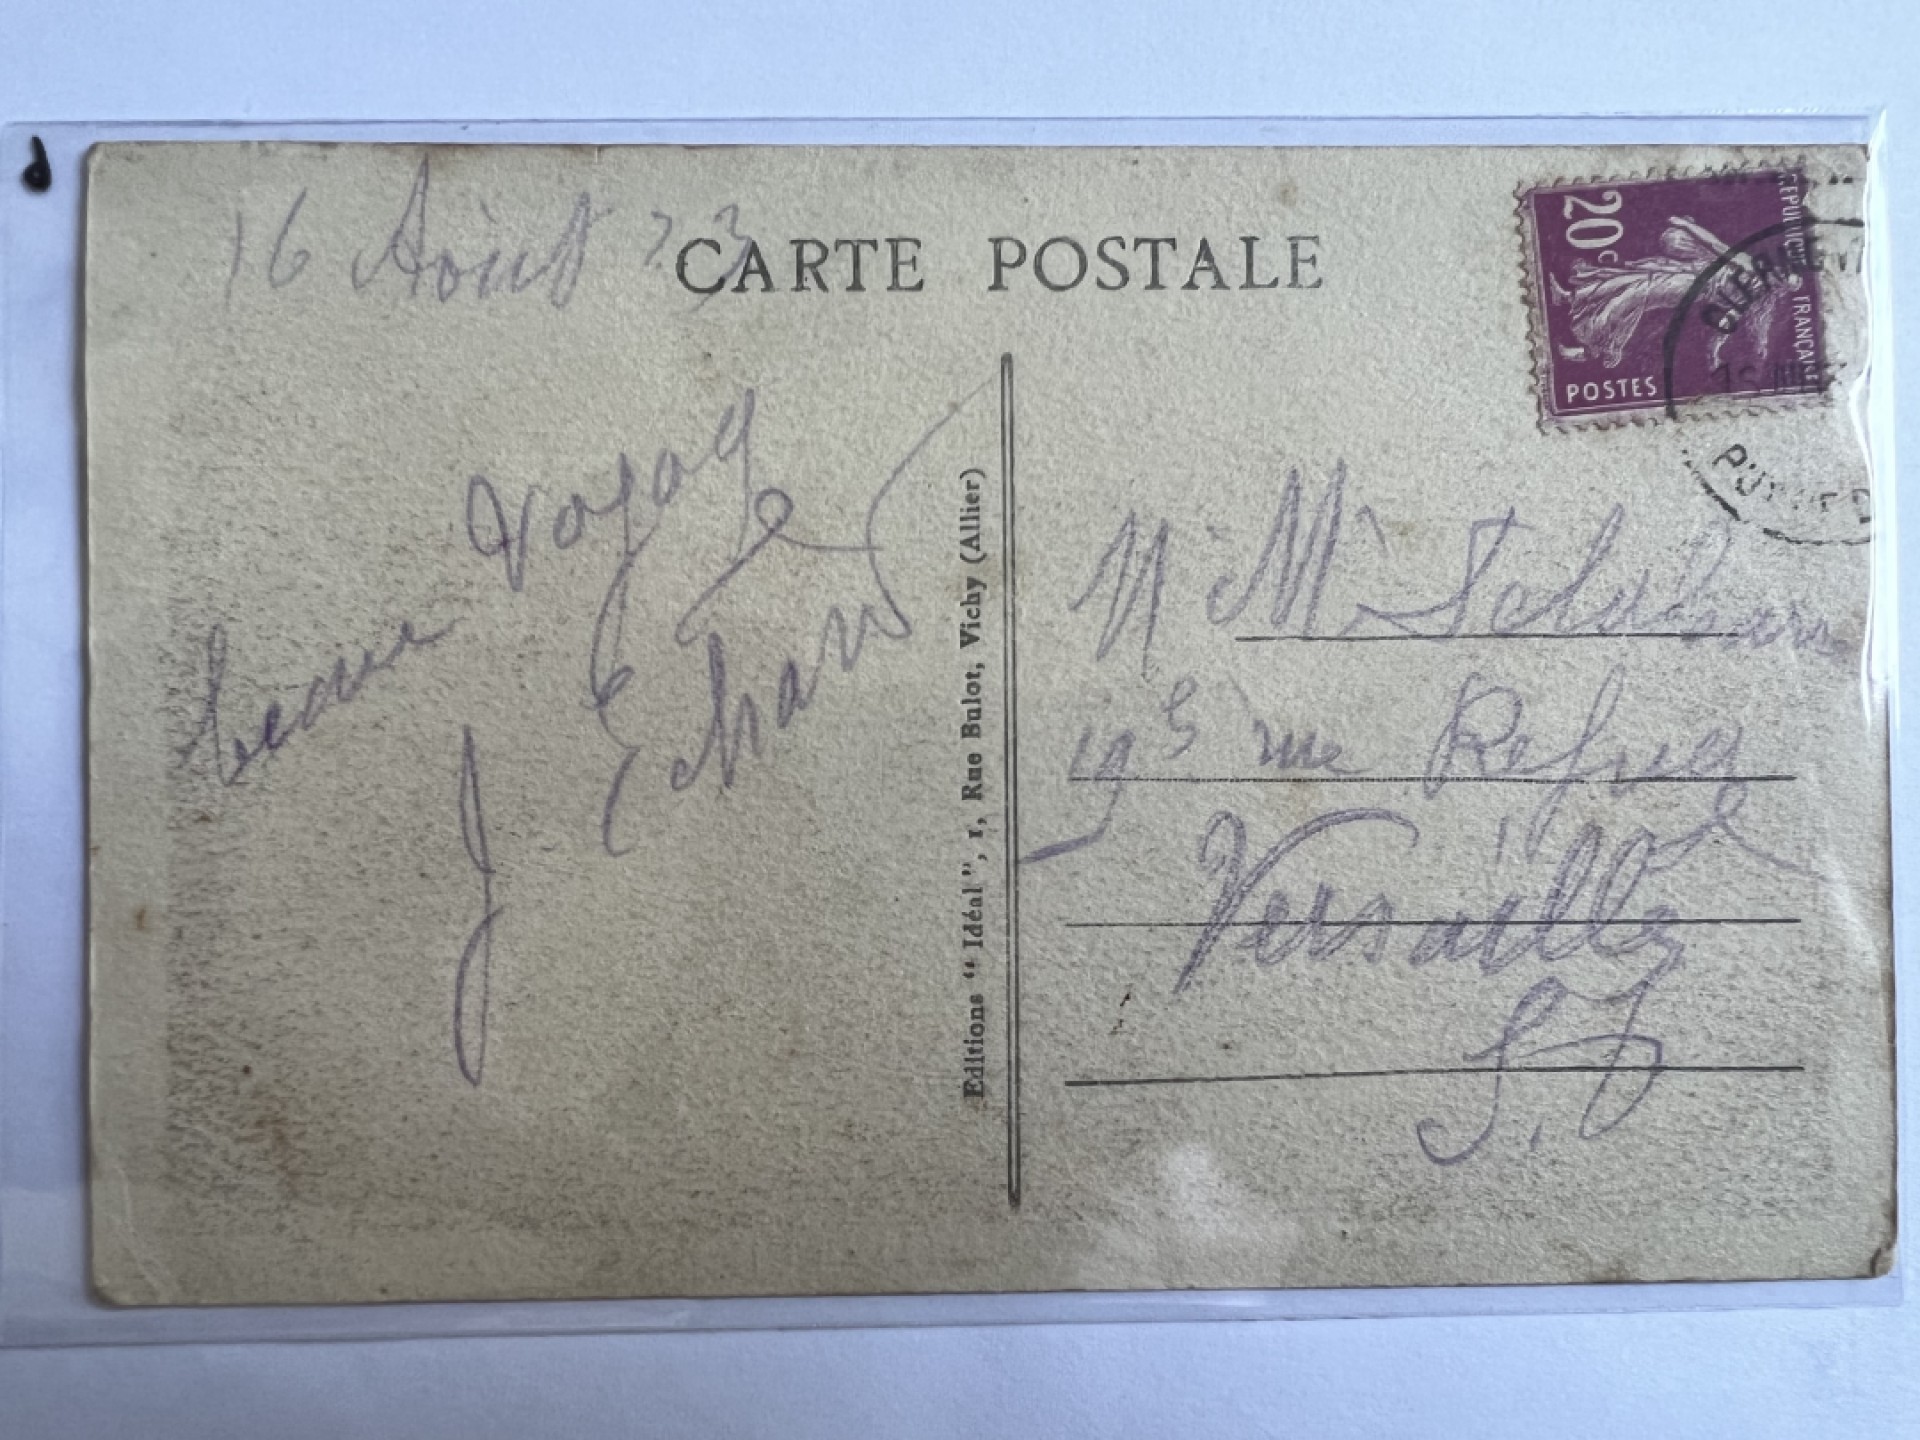 16 Août 33
CARTE POSTALE
20c
REPUBLIQUE FRANCAISE
POSTES
CLERMONT
PUY-DE-D
beau voyage
J Echard
Editions "Idéal", 1, Rue Bulot, Vichy (Allier)
M M
19 rue
Versailles
S. O